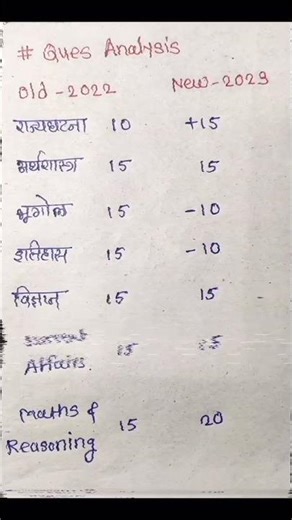 # Ques Analysis
Old - 2022 New - 2023
राज्यघटना 10 +15
अर्थशास्त्र 15 15
भूगोल 15 -10
इतिहास 15 -10
विज्ञान 15 15
Affairs. 15
Maths &
Reasoning 15 20